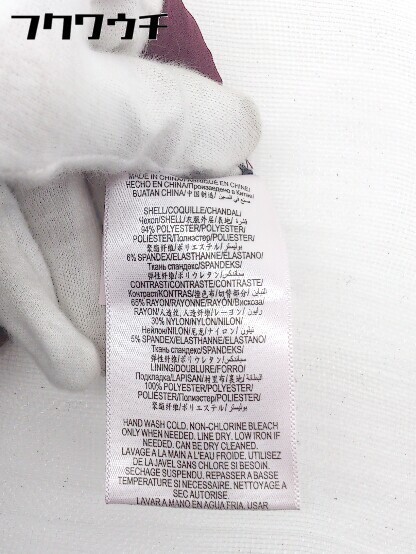 フクワウチ
MADE IN CHINA/FABRIQUÉ EN CHINE/
HECHO EN CHINA/Произведено в Китае/
BUATAN CHINA/中国制造/صنع في الصين
SHELL/COQUILLE/CHANDAL/
Чехол/SHELL/衣服外层/表地/قشرة
94% POLYESTER/POLYESTER/
POLIÉSTER/Полиэстер/POLIESTER/
聚酯纤维/ポリエステル/بوليستر
6% SPANDEX/ELASTHANNE/ELASTANO/
Ткань спандекс/SPANDEKS/
弹性纤维/ポリウレタン/سباندكس
CONTRAST/CONTRASTE/CONTRASTE/
Контраст/KONTRAS/撞色布/切替部分/التباين
65% RAYON/RAYONNE/RAYÓN/Вискоза/
RAYON/人造丝,人造纤维/レーヨン/رايون
30% NYLON/NYLON/NILON/
Нейлон/NILON/尼龙/ナイロン/نيلون
5% SPANDEX/ELASTHANNE/ELASTANO/
Ткань спандекс/SPANDEKS/
弹性纤维/ポリウレタン/سباندكس
LINING/DOUBLURE/FORRO/
Подкладка/LAPISAN/村里布/裏地/البطانة
100% POLYESTER/POLYESTER/
POLIÉSTER/Полиэстер/POLIESTER/
聚酯纤维/ポリエステル/بوليستر
HAND WASH COLD. NON-CHLORINE BLEACH
ONLY WHEN NEEDED. LINE DRY. LOW IRON IF
NEEDED. CAN BE DRY CLEANED.
LAVAGE A LA MAIN A L'EAU FROIDE. UTILISEZ
DE LA JAVEL SANS CHLORE SI BESOIN.
SECHAGE SUSPENDU. REPASSER A BASSE
TEMPERATURE SI NECESSAIRE. NETTOYAGE A
SEC AUTORISE.
LAVAR A MANO EN AGUA FRIA. USAR